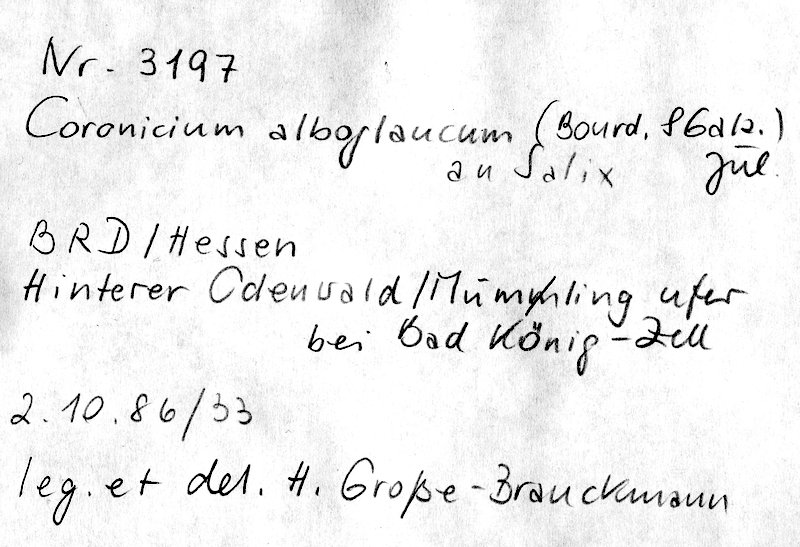 Nr. 3197
Coronicium alboglaucum (Bourd. & Galz.)
an Salix Jül.
BRD/Hessen
Hinterer Odenwald/Mümling ufer
bei Bad König-Zell
2.10.86/33
leg. et det. H. Große-Brauckmann